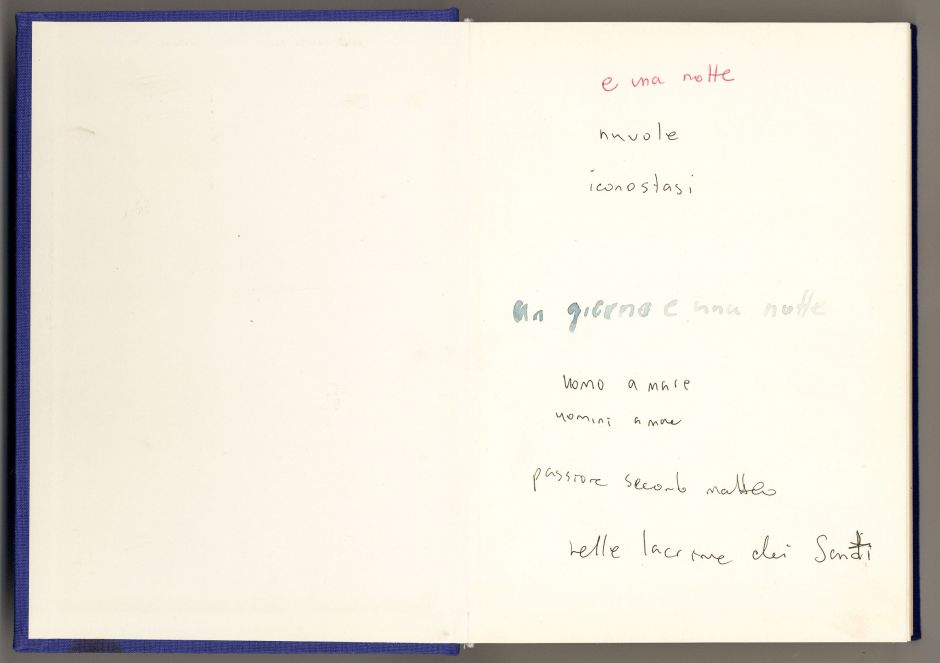 e una notte
nuvole
iconostasi
un giorno e una notte
uomo a mare
uomini a mare
passione secondo matteo
nelle lacrime dei Santi